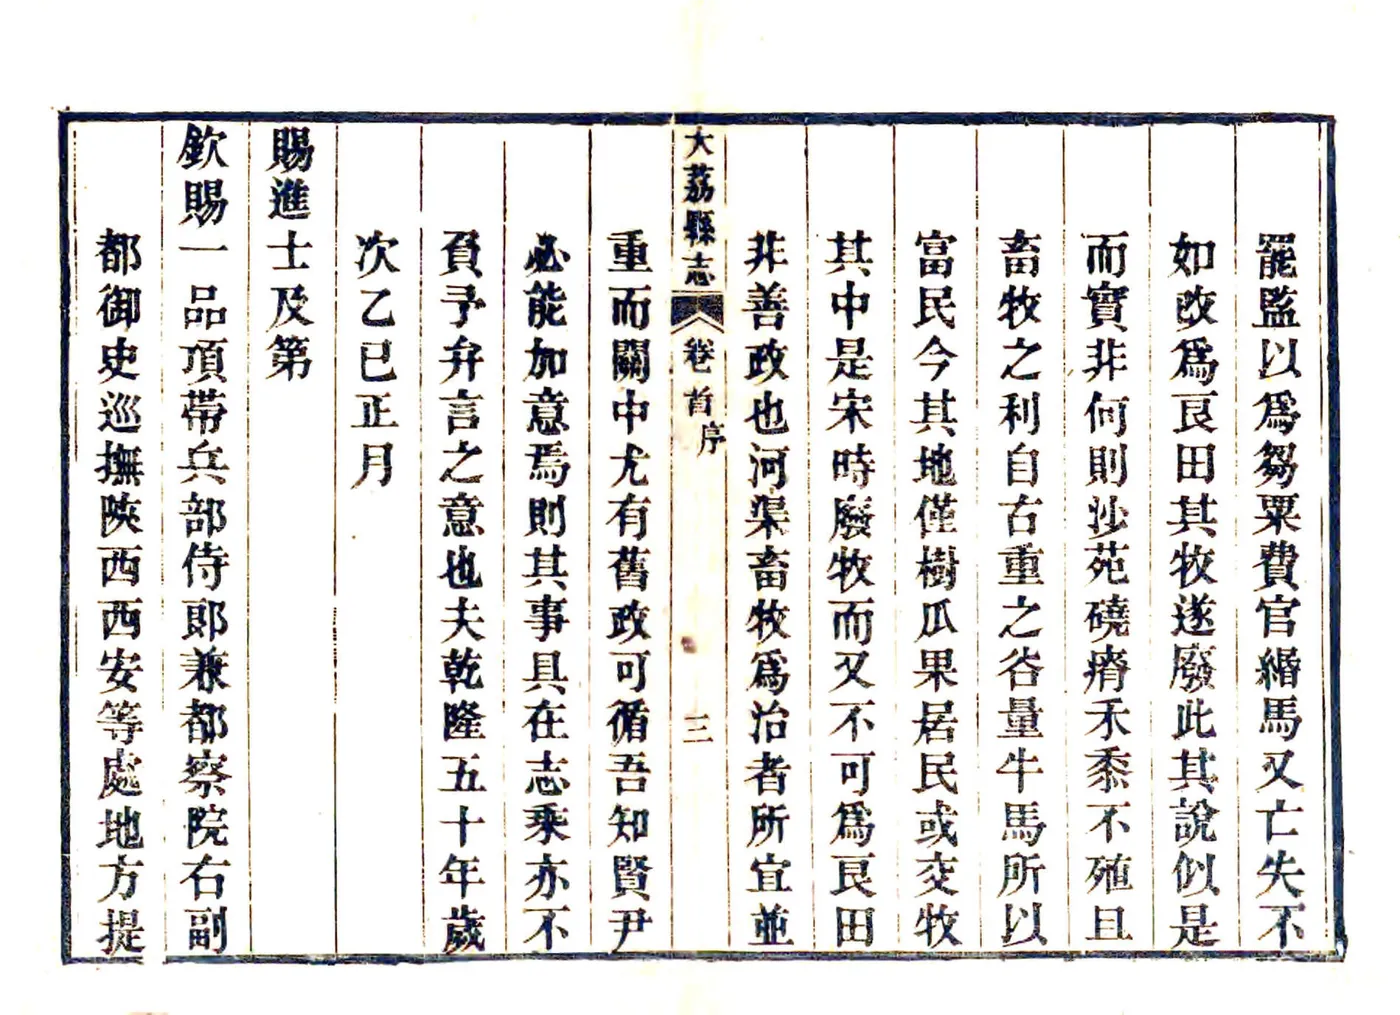 罷監以為芻粟費官緡馬又亡失不
如改為良田其牧遂廢此其說似是
而實非何則沙苑磽瘠禾黍不殖且
畜牧之利自古重之谷量牛馬所以
富民今其地僅樹瓜果居民或交牧
其中是宋時廢牧而又不可為良田
非善政也河渠畜牧為治者所宜並
大荔縣志 卷首 序 三
重而關中尤有舊政可循吾知賢尹
必能加意焉則其事具在志乘亦不
負予弁言之意也夫乾隆五十年歲
次乙巳正月
賜進士及第
欽賜一品頂帶兵部侍郎兼都察院右副
都御史巡撫陝西西安等處地方提